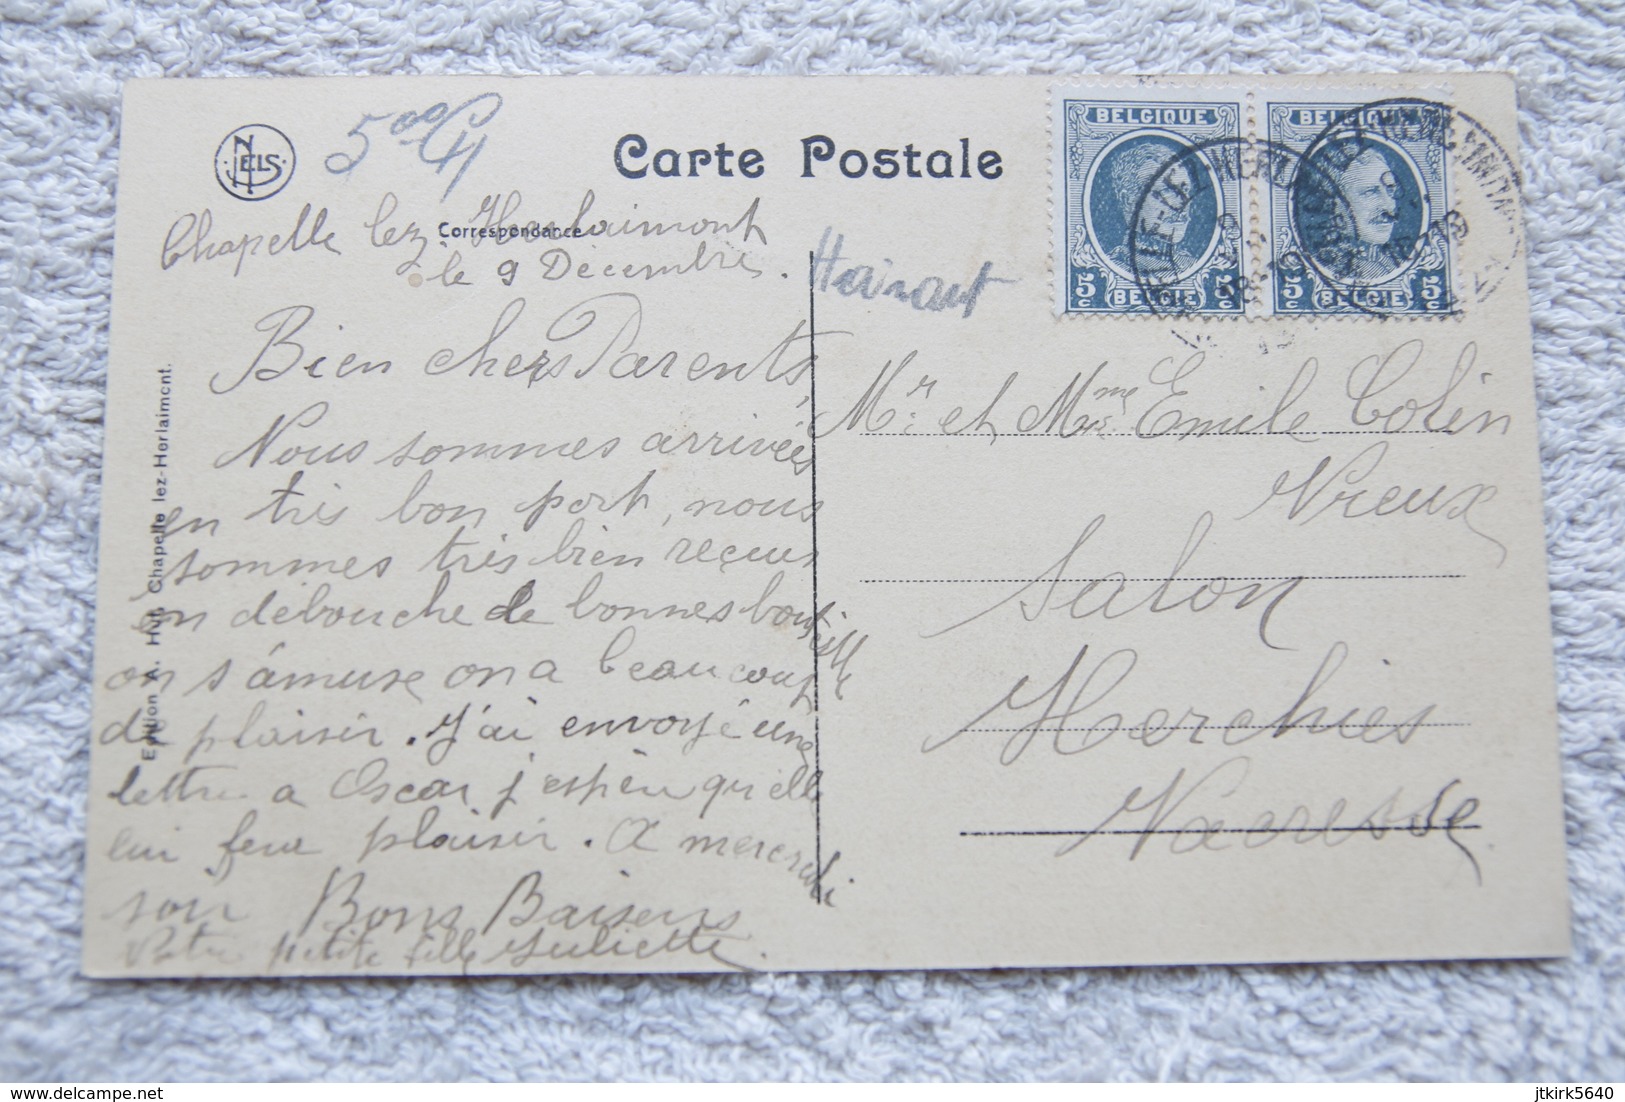 NELS
5 00
Carte Postale
BELGIQUE
BELGIQUE
5c BELGIE 5c
5c BELGIE 5c
Correspondance
Chapelle lez-Herlaimont
le 9 Décembre.
Hainaut
Bien chers Parents,
Nous sommes arrivées
en très bon port, nous
sommes très bien reçus
on débouche de bonnes bouteille
on s'amuse on a beaucoup
de plaisir. J'ai envoyé une
lettre a Oscar j'espère qu'elle
lui fera plaisir. A mercredi
soir Bons Baisers
Votre petite fille Juliette.
Mr. et Mme Emile Colin
Vreux
Salon
Herchies
Vacresse
Edition A. Hye Chapelle lez-Herlaimont.
delcampe.net
jtkirk5640